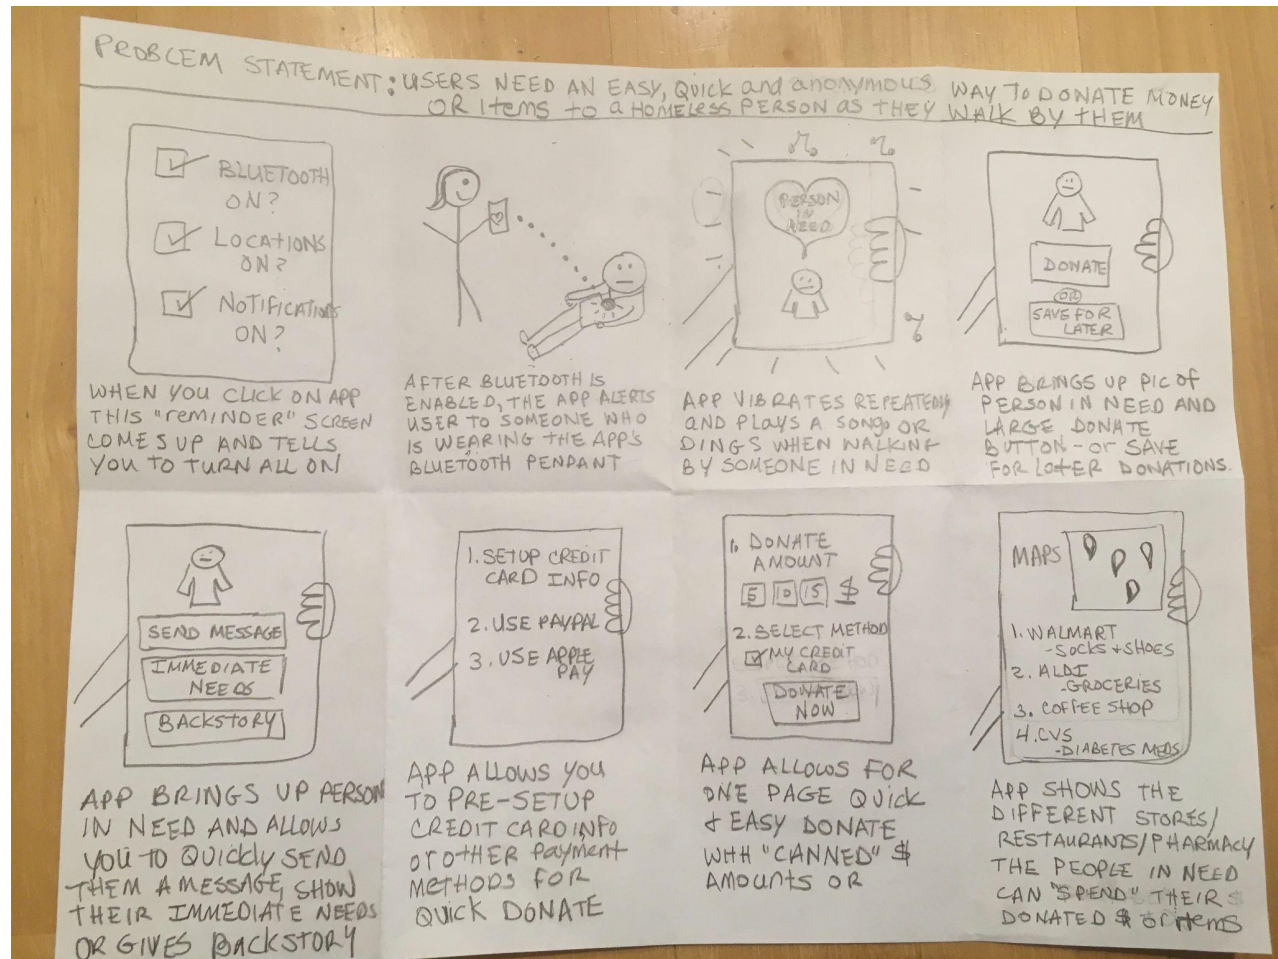 PROBLEM STATEMENT: USERS NEED AN EASY, QUICK and anonymous WAY TO DONATE MONEY
OR Items to a HOMELESS PERSON AS tHEY WALK BY tHEM
BLUETOOTH
ON?
LOCAtIONS
ON?
NOTIFICATIONS
ON?
WHEN YOU CLICK ON APP
THIS "reminDER" SCREEN
COMES UP AND TELLS
YOU TO TURN ALL ON
AFTER BLUETOOTH IS
ENABLED, THE APP ALERTS
USER TO SOMEONE WHO
IS WEARING tHE APP'S
BLUETOOTH PENDANT
PERSON
IN
NEED
APP VIBRATES REPEATEDLY
AND PLAYS A SONG OR
DINGS WHEN WALKING
BY SOMEONE IN NEED
DONATE
OR
SAVE FOR
LATER
APP BRINGS UP PIC OF
PERSON IN NEED AND
LARGE DONATE
BUTTON - or SAVE
FOR LATER DONATIONS.
SEND MESSAGE
IMMEDIATE
NEEDS
BACKSTORY
APP BRINGS UP PERSON
IN NEED AND ALLOWS
YOU TO QUICKLY SEND
THEM A MESSAGE, SHOW
THEIR IMMEDIATE NEEDS
OR GIVES BACKSTORY
1. SETUP CREDIT
CARD INFO
2. USE PAYPAL
3. USE APPLE
PAY
APP ALLOWS YOU
TO PRE-SETUP
CREDIT CARD INFO
or OTHER Payment
METHODS FOR
QUICK DONATE
1. DONATE
AMOUNT
5 10 15 $
2. SELECT METHOD
MY CREDIT
CARD
DONATE
NOW
APP ALLOWS FOR
ONE PAGE QUICK
& EASY DONATE
WITH "CANNED" $
AMOUNTS OR
MAPS
1. WALMART
- SOCKS + SHOES
2. ALDI
- GROCERIES
3. COFFEE SHOP
4. CVS
- DIABETES MEDS
APP SHOWS THE
DIFFERENT STORES/
RESTAURANTS/PHARMACY
THE PEOPLE IN NEED
CAN "SPEND" THEIR
DONATED $ or items